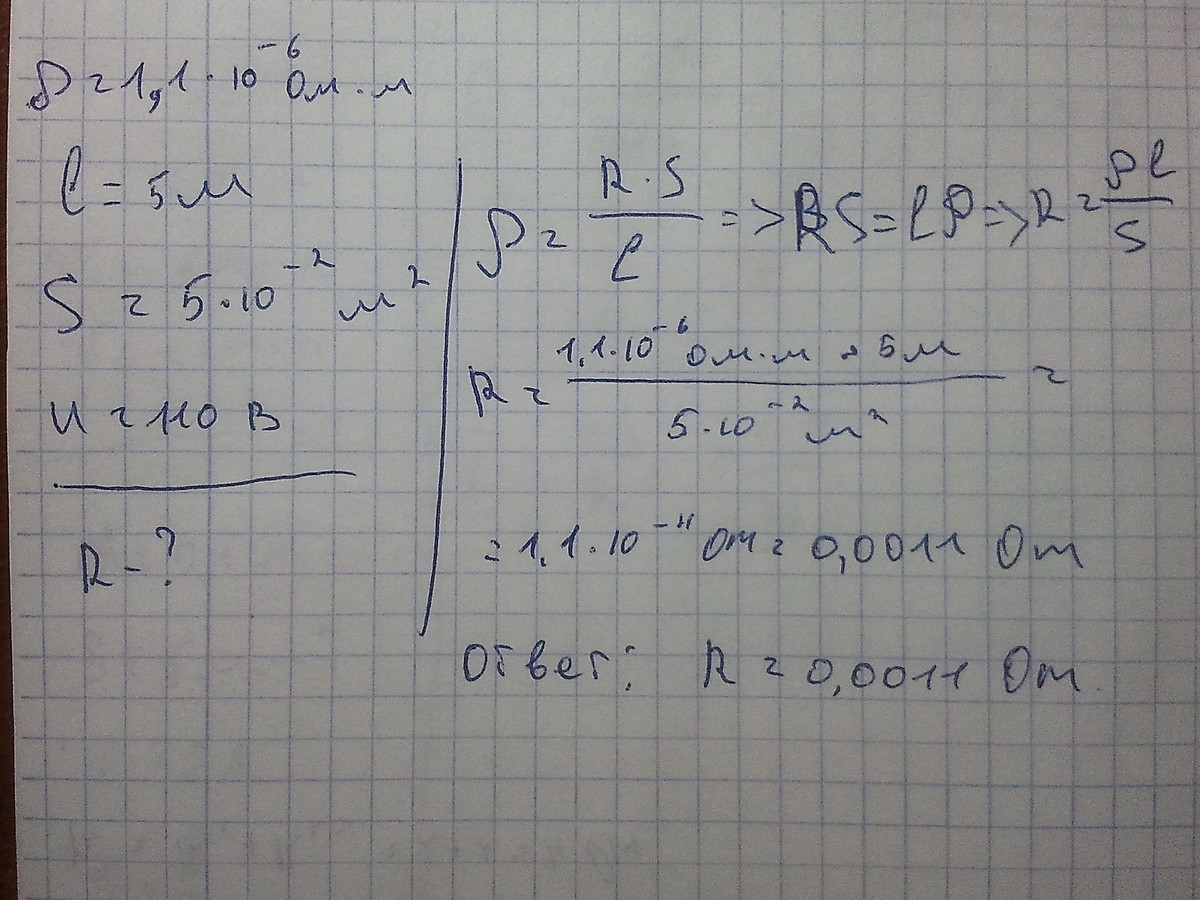 ρ = 1,1 · 10⁻⁶ Ом · м
l = 5 м
S = 5 · 10⁻² м²
U = 110 В
R - ?
ρ = R · S / l => RS = lρ => R = ρl / S
R = 1,1 · 10⁻⁶ Ом · м · 5 м / 5 · 10⁻² м² =
= 1,1 · 10⁻⁴ Ом = 0,0011 Ом
Ответ: R = 0,0011 Ом.